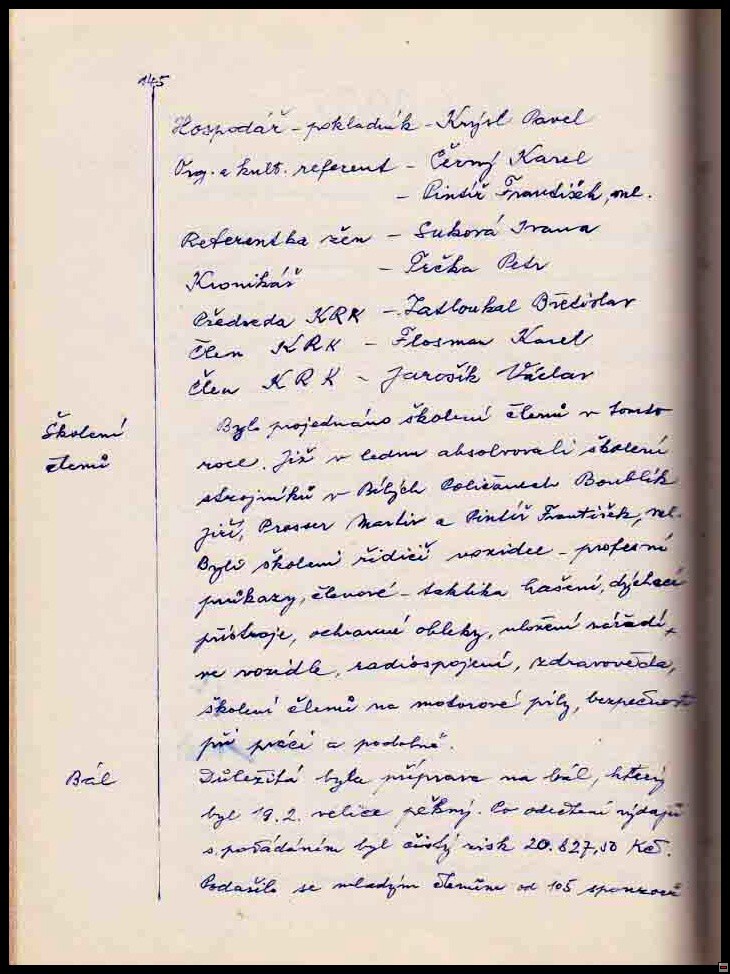 145
Hospodář – pokladník – Krýsl Pavel
Org. a kult. referent – Černý Karel
– Pintíř František, ml.
Referentka žen – Suková Ivana
Kronikář – Trčka Petr
Předseda KRK – Zatloukal Břetislav
Člen KRK – Flosman Karel
Člen KRK – Jarošík Václav
Bylo projednáno školení členů v tomto
Školení
členů
roce. Již v lednu absolvovali školení
strojníků v Bílých Poličanech Boublík
Jiří, Prosser Martin a Pintíř František, ml.
Byli školeni řidiči vozidel – profesní
průkazy, členové – taktika hašení, dýchací
přístroje, ochranné obleky, uložení nářadí
ve vozidle, radiospojení, zdravověda,
školení členů na motorové pily, bezpečnost
při práci a podobně.
Bál
Důležitá byla příprava na bál, který
byl 19.2. velice pěkný. Po odečtení výdajů
s pořádáním byl čistý zisk 20.827,50 Kč.
Podařilo se mladým členům od 105 sponzorů